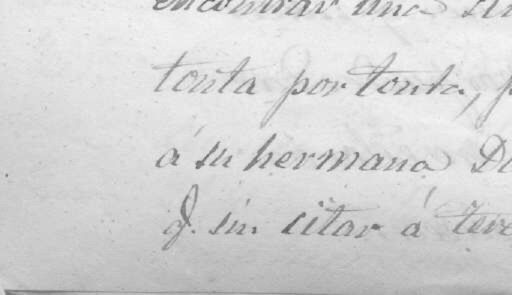 encontrar una
tonta por tonta,
á su hermana
sin citar á